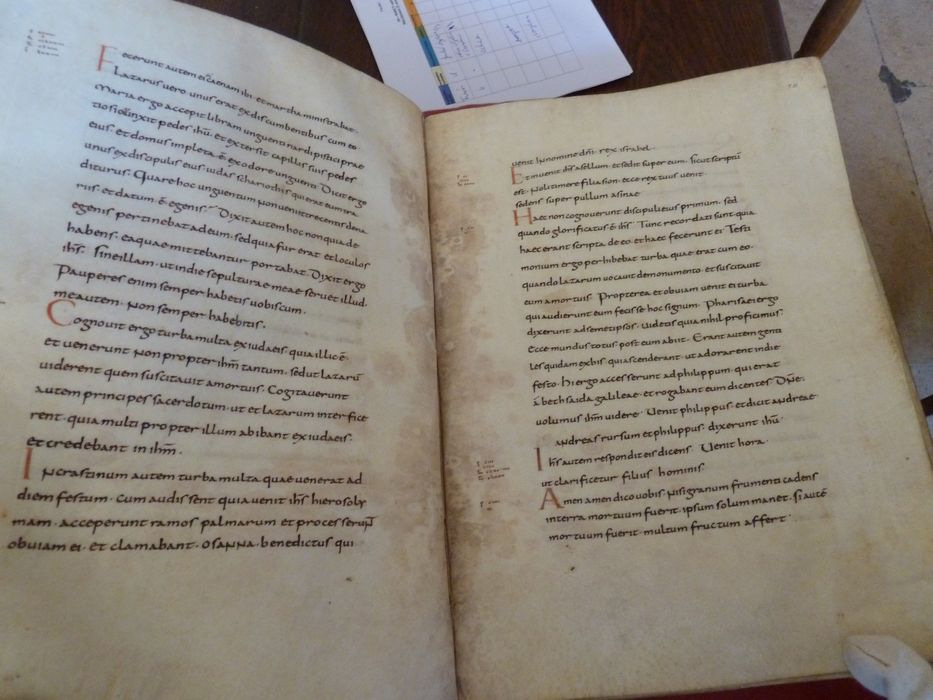 Fecerunt autem ei caenam ibi · et martha ministrabat ·
Lazarus vero unus erat ex discumbentibus cum eo ·
Maria ergo accepit libram unguenti nardi pistici prae
tiosi · unxit pedes ihu · et extersit capillis suis pedes
eius · et domus impleta ē ex odore unguenti · Dixit ergo
unus ex discipulis eius iudas schariothis qui erat eum tra
diturus · Quare hoc unguentum non veniit trecentis dena
riis · et datum ē egenis · Dixit autem hoc non quia de
egenis pertinebat ad eum · sed quia fur erat et loculos
habens · ea quae mittebantur portabat · Dixit ergo
ihs · Sine illam · ut in die sepulturae meae servet illud ·
Pauperes enim semper habetis vobiscum ·
me autem · non semper habebitis ·
Cognovit ergo turba multa ex iudaeis · quia illic ē ·
et venerunt non propter ihm tantum · sed ut lazarū
viderent quem suscitavit a mortuis · Cogitaverunt
autem principes sacerdotum · ut et lazarum interfice
rent · quia multi propter illum abibant ex iudaeis ·
et credebant in ihm ·
In crastinum autem turba multa quae venerat ad
diem festum · cum audissent quia venit ihs hierosoly
mam · acceperunt ramos palmarum et processerunt
obviam ei · et clamabant · osanna · benedictus qui
venit in nomine dni · rex israhel ·
Et invenit ihs asellum · et sedit super eum · sicut scriptū
est · Noli timere filia sion · ecce rex tuus venit
sedens super pullum asinae
Haec non cognoverunt discipuli eius primum · sed
quando glorificatus ē ihs · Tunc recordati sunt quia
haec erant scripta de eo · et haec fecerunt ei · Testi
monium ergo perhibebat turba quae erat cum eo ·
quando lazarum vocavit de monumento · et suscitavit
eum a mortuis · Propterea et obviam venit ei turba ·
qui audierunt eum fecisse hoc signum · Pharisaei ergo
dixerunt ad semetipsos · videtis quia nihil proficimus ·
Ecce mundus totus post eum abiit · Erant autem genti
les quidam ex his qui ascenderant · ut adorarent in die
festo · Hi ergo accesserunt ad philippum · qui erat
a bethsaida galileae · et rogabant eum dicentes · Dne ·
volumus ihm videre · Venit philippus · et dicit andreae ·
andreas rursum et philippus · dixerunt ihu ·
Ihs autem respondit eis dicens · Venit hora ·
ut clarificetur filius hominis ·
Amen amen dico vobis · Nisi granum frumenti cadens
in terra mortuum fuerit · ipsum solum manet · si autē
mortuum fuerit · multum fructum affert ·